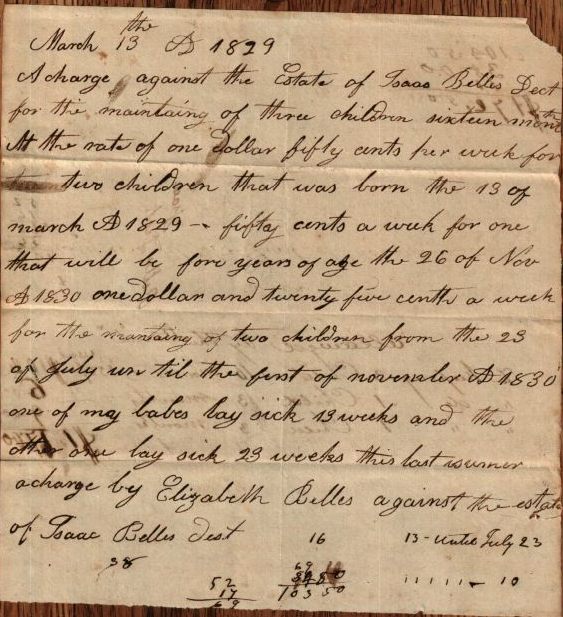 March 13 the AD 1829
A charge against the Estate of Isaac Belles Dect
for the maintaing of three children sixteen month
At the rate of one dollar fifty cents per week for
two children that was born the 13 of
march AD 1829 - fifty cents a week for one
that will be fore years of age the 26 of Nov
AD 1830 one dollar and twenty five cents a week
for the mantaing of two children from the 23
of July un til the first of november AD 1830
one of my babes lay sick 13 weeks and the
other one lay sick 23 weeks this last sumer
a charge by Elizabeth Belles against the estate
of Isaac Belles dest 16 13 - until July 23
38 10
52
17
69
103 50